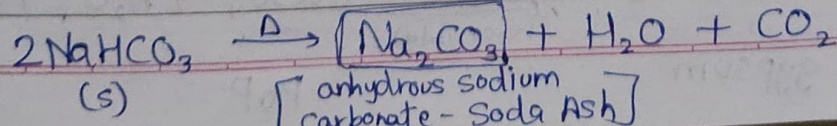 2NaHCO₃ —Δ→ Na₂CO₃ + H₂O + CO₂
(s) [anhydrous sodium
carbonate - Soda Ash]